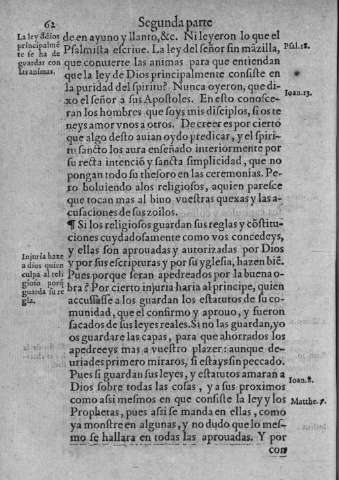 62 Segunda parte
La ley dḋios
principalmẽ
te se ha de
guardar con
las animas.
de en ayuno y llanto, &c. Ni leyeron lo que el
Psalmista escriue. La ley del señor sin mãzilla,
que conuerte las animas para que entiendan
que la ley de Dios principalmente consiste en
la puridad del spiritu? Nunca oyeron, que di-
xo el señor a sus Apostoles. En esto conosce-
ran los hombres que soys mis disciplos, si os te
neys amor vnos a otros. De creer es por cierto
que algo desto auian oydo predicar, y el spiri-
tu sancto los aura enseñado interiormente por
su recta intenció y sancta simplicidad, que no
pongan todo su thesoro en las ceremonias. Pe-
ro boluiendo alos religiosos, aquien paresce
que tocan mas al biuo vuestras quexas y las a-
cusaciones de sus zoilos.
Psal. 18.
Ioan. 13.
¶ Si los religiosos guardan sus reglas y cõstitu-
ciones cuydadosamente como vos concedeys,
y ellas son aprouadas y autorizadas por Dios
y por sus escripturas y por su yglesia, hazen biẽ.
Pues porque seran apedreados por la buena o-
bra? Por cierto injuria haria al principe, quien
accusasse a los guardan los estatutos de su co-
munidad, que el confirmo y aprouo, y fueron
sacados de sus leyes reales. Si no las guardan, yo
os guardare las capas, para que ahorrados los
apedreeys mas a vuestro plazer: aunque de-
uriades primero miraros, si estays sin peccado.
Pues si guardan sus leyes, y estatutos amaran a
Dios sobre todas las cosas, y a sus proximos
como asi mesmos en que consiste la ley y los
Prophetas, pues asi se manda en ellas, como
ya monstre en algunas, y no dudo que lo mes-
mo se hallara en todas las aprouadas. Y por
con
Injuria haze
a dios quien
culpa al reli
gioso porq̃
guarda su re
gla.
Ioan. 8.
Matthe. 7.